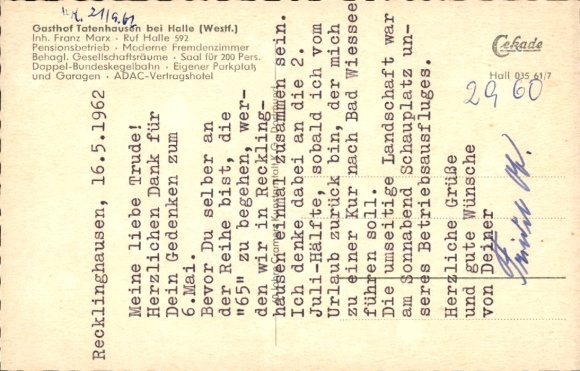 Gasthof Tatenhausen bei Halle (Westf.)
Inh. Franz Marx · Ruf Halle 592
Pensionsbetrieb · Moderne Fremdenzimmer
Behagl. Gesellschaftsräume · Saal für 200 Pers.
Doppel-Bundeskegelbahn · Eigener Parkplatz
und Garagen · ADAC-Vertragshotel
Cekade
Hall 035 61/7
29 60
Recklinghausen, 16.5.1962
Meine liebe Trude!
Herzlichen Dank für
Dein Gedenken zum
6.Mai.
Bevor Du selber an
der Reihe bist, die
"65" zu begehen, wer-
den wir in Reckling-
hausen einmal zusammen sein.
Ich denke dabei an die 2.
Juli-Hälfte, sobald ich vom
Urlaub zurück bin, der mich
zu einer Kur nach Bad Wiessee
führen soll.
Die umseitige Landschaft war
am Sonnabend Schauplatz un-
seres Betriebsausfluges.
Herzliche Grüße
und gute Wünsche
von Deiner